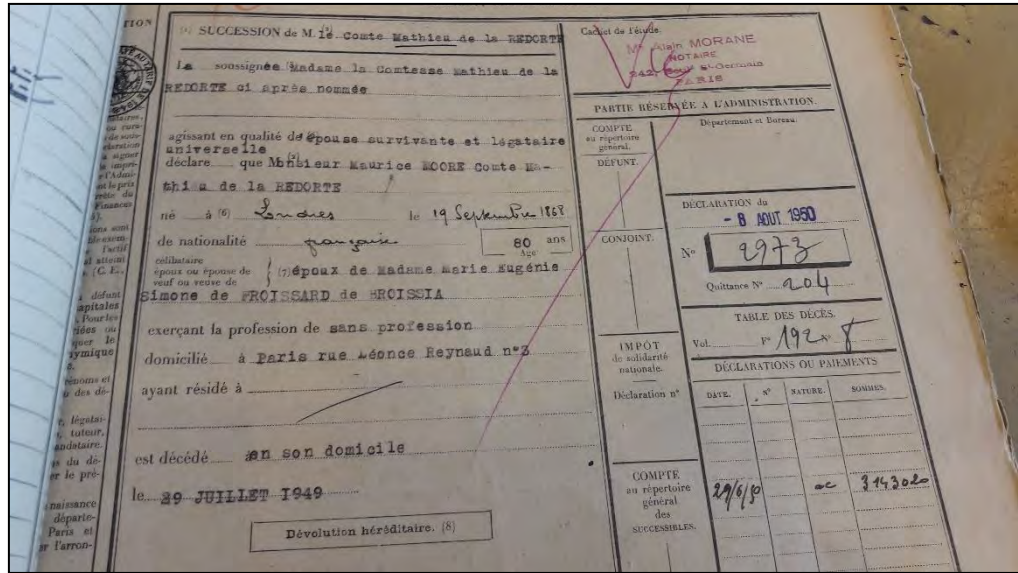 SUCCESSION de M. le Comte Mathieu de la REDORTE
La soussignée Madame la Comtesse Mathieu de la
REDORTE ci après nommée
agissant en qualité de épouse survivante et légataire
universelle
déclare que Monsieur Maurice MOORE Comte Ma-
thieu de la REDORTE
né à (6) Londres le 19 Septembre 1868
de nationalité française 80 ans
Age
célibataire
époux ou épouse de
veuf ou veuve de
(7) époux de Madame Marie Eugénie
Simone de FROISSARD de BROISSIA
exerçant la profession de sans profession
domicilié à Paris rue Léonce Reynaud n°3
ayant résidé à
est décédé en son domicile
le 29 JUILLET 1949
Dévolution héréditaire. (8)
Cachet de l'étude.
Me Alain MORANE
NOTAIRE
242, Boul. St-Germain
PARIS
PARTIE RÉSERVÉE A L'ADMINISTRATION.
COMPTE
au répertoire
général.
DÉFUNT.
CONJOINT.
IMPÔT
de solidarité
nationale.
Déclaration n°
COMPTE
au répertoire
général
des
SUCCESSIBLES.
Département et Bureau.
DÉCLARATION du
- 8 AOUT 1950
N° 2973
Quittance N° 204
TABLE DES DÉCÈS.
Vol. F° 192 N° 8
DÉCLARATIONS OU PAIEMENTS
DATE. N° NATURE. SOMMES.
29/6/50 ac 3143020